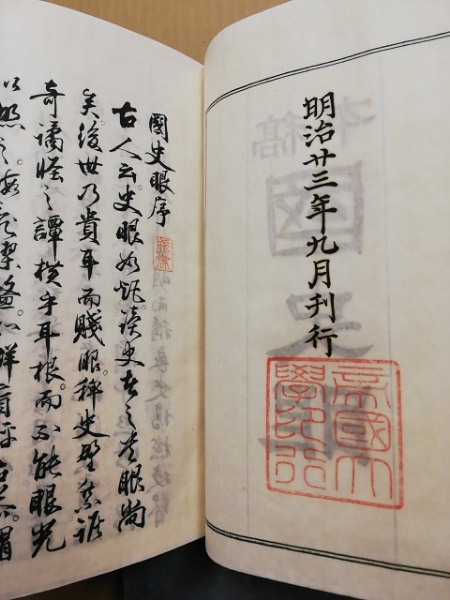 明治廿三年九月刊行
帝國大
學印行
國史眼序
古人云。史眼如炬。讀史者之眼尚
矣。後世乃貴耳而賤眼。稗史野乘詼
奇譎怪之譚。横乎耳根。而不能眼光
以照之。